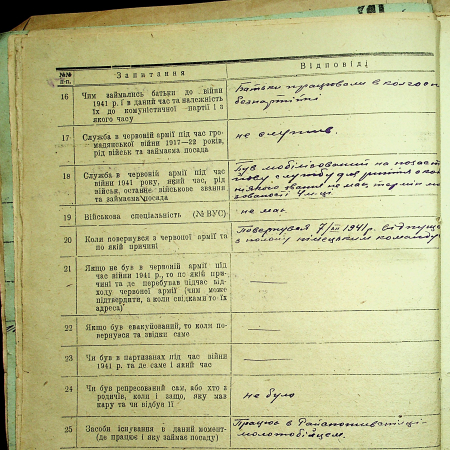 №№ п-п.
Запитання
Відповіді
16
Чим займались батьки до війни
1941 р. і в даний час та належність
їх до комуністичної партії і з
якого часу
Батьки працювали в колгосп
безпартійні
17
Служба в червоній армії під час гро-
мадянської війни 1917—22 років,
рід військ та займаєма посада
не служив.
18
Служба в червоній армії під час
війни 1941 року, який час, рід
військ, останнє військове звання
та займаєма посада
Був мобілізований на
службу для риття окоп
19
Військова спеціальність (№ ВУС)
не має.
20
Коли повернувся з червоної армії та
по якій причині
Повернувся 7/XII 1941 р. відпуще
з полону німецьким командув
21
Якщо не був в червоній армії під
час війни 1941 р., то по якій при-
чині та де перебував підчас від-
ходу червоної армії (чим може
підтвердити, а коли свідками то їх
адреса)
22
Якщо був евакуйований, то коли по-
вернувся та звідки саме
23
Чи був в партизанах під час війни
1941 р. та де саме і який час
24
Чи був репресований сам, або хто з
родичів, коли і защо, яку мав
кару та чи відбув її
не було
25
Засоби існування в даний момент-
(де працює і яку займає посаду)
Працює в
молотобійцем.